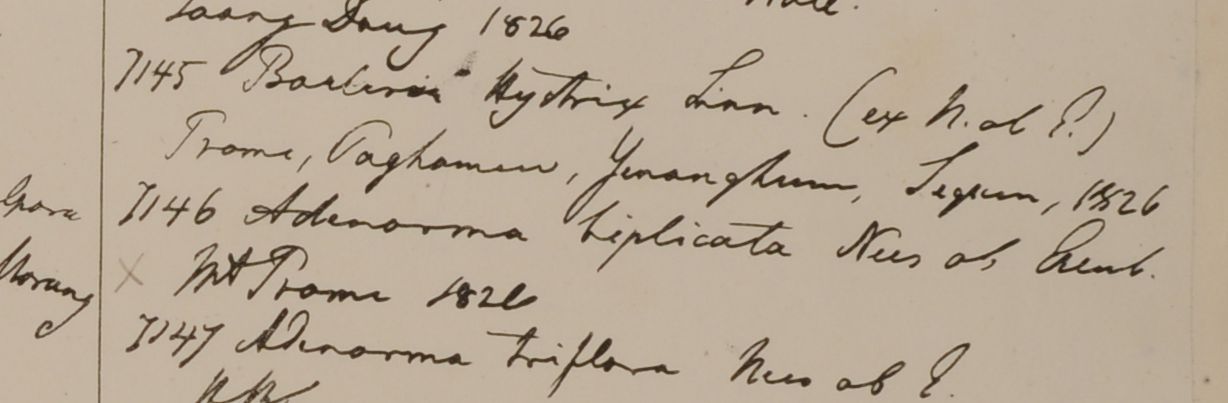 Taong Doung 1826
7145 Barleria Hystrix Linn. (ex N. ab E.)
Prome, Paghamew, Yenanghum, Segaen, 1826
7146 Adenosma biplicata Nees ab Esenb.
x Mt Prome 1826
7147 Adenosma triflora Nees ab E.
Morung